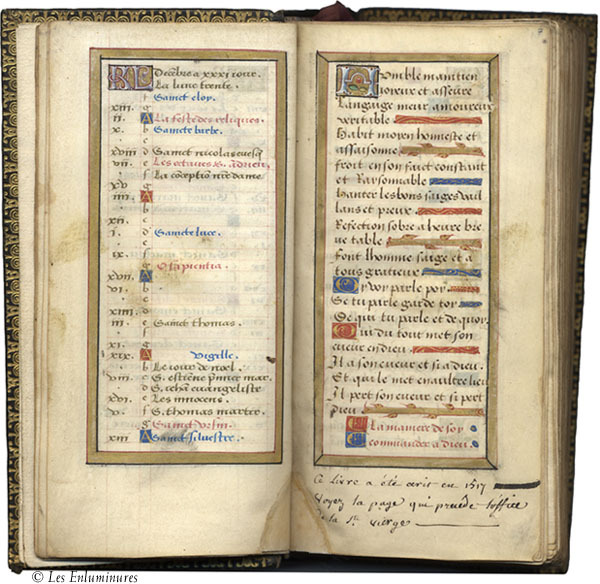 KL Decẽbre a xxxi iours.
La lune trente.
f Sainct eloy.
xiii. g
ii. A La feste des reliques.
x. b Saincte barbe.
c
xviii d Sainct nicolas euesq
vii. e Les octaues s. Andieu,
f La cõceptio nr̃e dame
xv g
iiii. A
b
xii. c
i. d Saincte luce.
e
ix. f
g O sapientia.
xvii. A
vi. b
c
xiiii. d
iii. e Sainct thomas.
f
xi. g
xix. A Vigille.
b Le iour de noel.
viii c S. estiẽne p̃mice mar.
d S. iehã euangeliste
xvi e Les innocens.
v. f S. thomas martir.
g Sainct Ursin.
xiii A Sainct siluestre.
Humble maintien
ioyeux et asseure
Langaige meur amoureux
veritable
Habit moyen honneste et
assaisonne
froit en son faict constant
et Raisonnable
Hanter les bons saiges vail
lans et preux.
Refection sobre a heure brie
ue table
font lhomme saige et a
tous gratieux
Oy voy parle poy.
Se tu parle garde toy
De qui tu parle et de quoy.
Qui du tout met son
cueur en dieu.
Il a son cueur et si a dieu.
Et qui le met en aultre lieu
Il pert son cueur et si pert
Dieu.
La maniere de soy
commander a dieu.
Ce livre a été ecrit en 1517
Voyez la page qui précède l'office
de la Ste Vierge
© Les Enluminures